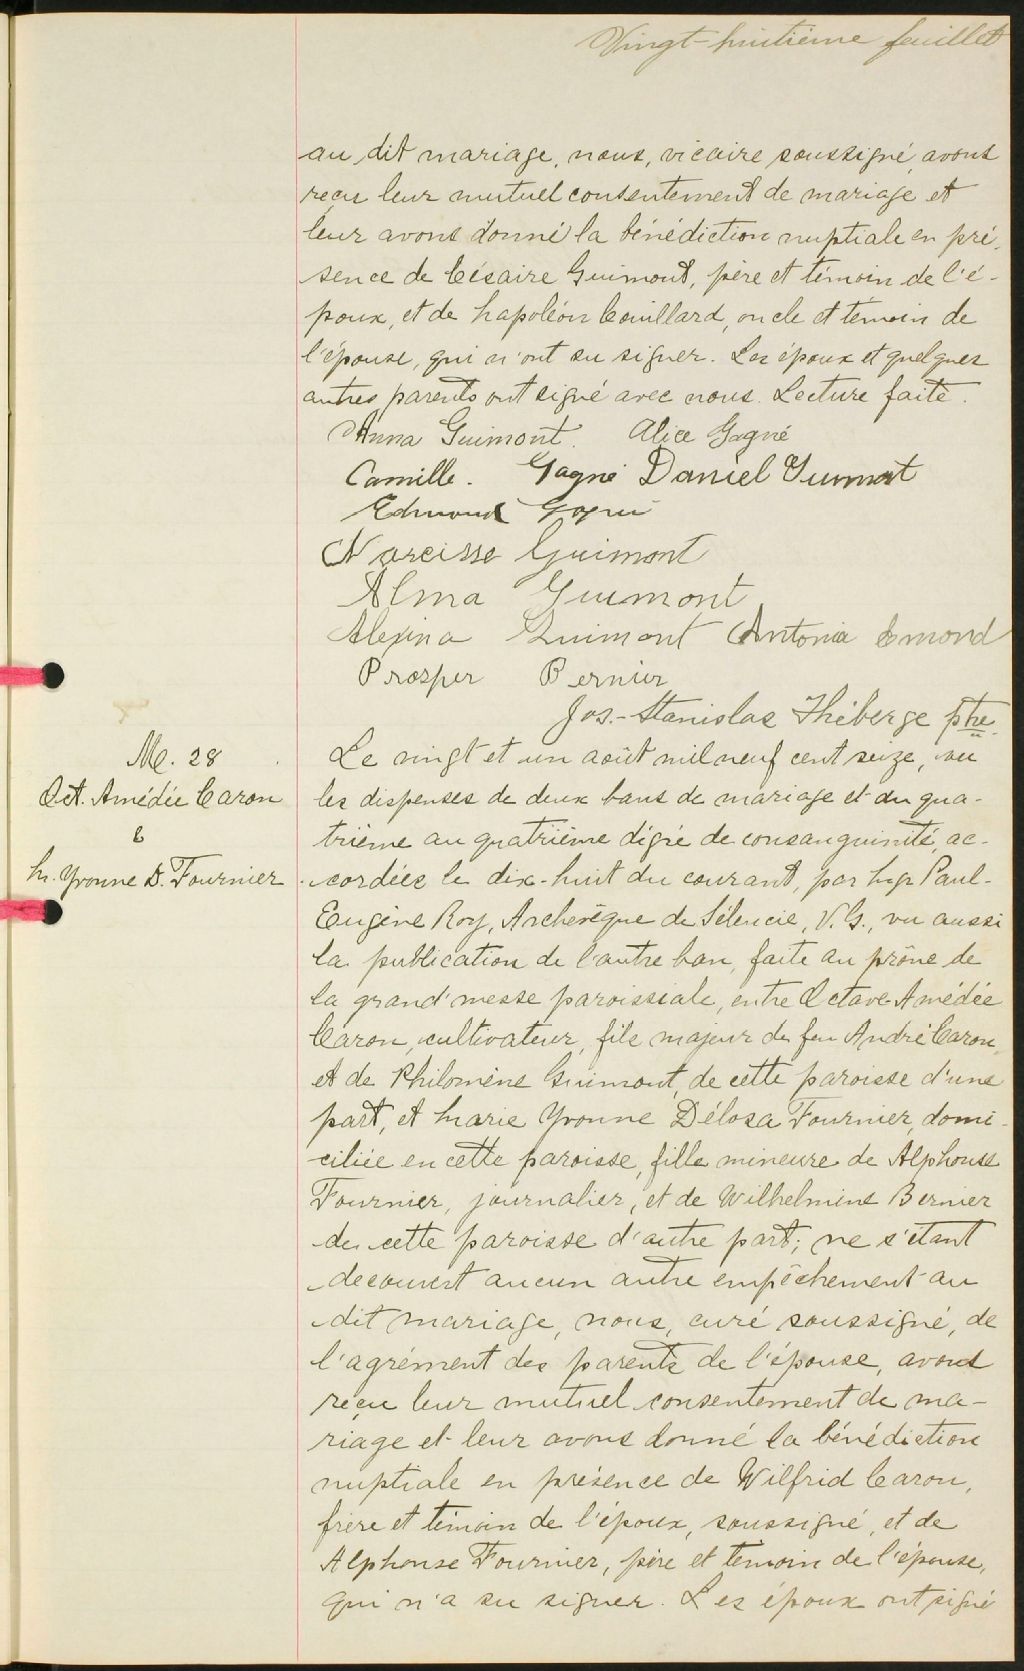 Vingt-huitième feuillet
au dit mariage, nous, vicaire soussigné, avons
reçu leur mutuel consentement de mariage et
leur avons donné la bénédiction nuptiale en pré-
sence de Césaire Guimont, père et témoin de l'é-
poux, et de Napoléon Couillard, oncle et témoin de
l'épouse, qui n'ont su signer. Les époux et quelques
autres parents ont signé avec nous. Lecture faite.
Anna Guimont. Alice Gagné
Camille. Gagné Daniel Guimont
Edmond Gagné
Narcisse Guimont
Alma Guimont
Alexina Guimont Antonia Emond
Prosper Bernier
Jos.-Stanislas Théberge ptre.
M. 28
Oct. Amédée Caron
&
M. Yvonne D. Fournier
Le vingt et un août mil neuf cent seize, vu
les dispenses de deux bans de mariage et du qua-
trième au quatrième dégré de consanguinité, ac-
cordées le dix-huit du courant, par Mgr Paul-
Eugène Roy, Archevêque de Séleucie, V. G., vu aussi
la publication de l'autre ban, faite au prône de
la grand'messe paroissiale, entre Octave-Amédée
Caron, cultivateur, fils majeur de feu André Caron,
et de Philomène Guimont, de cette paroisse d'une
part, et Marie Yvonne Délosa Fournier, domi-
ciliée en cette paroisse, fille mineure de Alphonse
Fournier, journalier, et de Wilhelmine Bernier
de cette paroisse d'autre part; ne s'étant
découvert aucun autre empêchement au
dit mariage, nous, curé soussigné, de
l'agrément des parents de l'épouse, avons
reçu leur mutuel consentement de ma-
riage et leur avons donné la bénédiction
nuptiale en présence de Wilfrid Caron,
frère et témoin de l'époux, soussigné, et de
Alphonse Fournier, père et témoin de l'épouse,
qui n'a su signer. Les époux ont signé